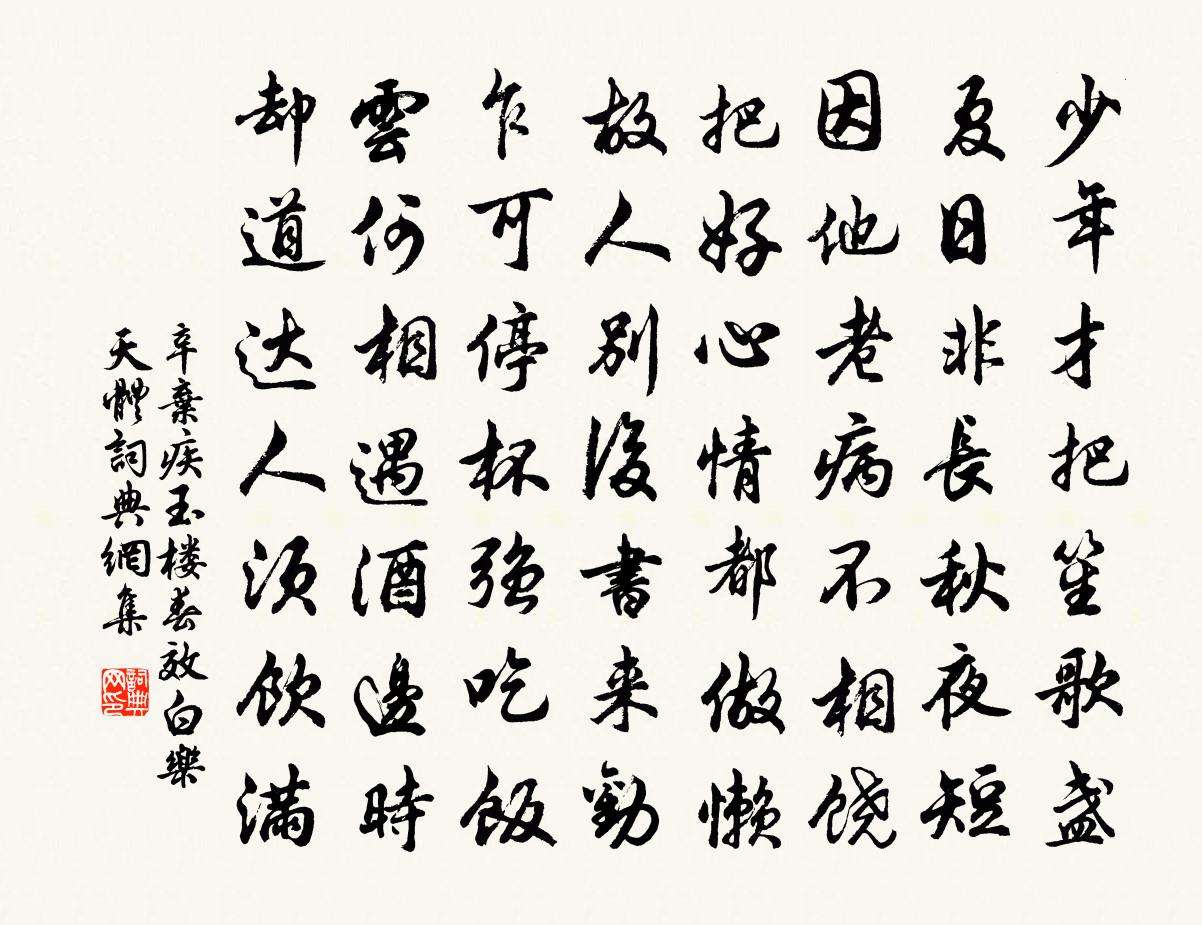 少年才把笙歌盏
夏日非長秋夜短
因他老病不相饶
把好心情都做懒
故人别後書来勸
乍可停杯強吃飯
雲何相遇酒邊時
却道达人须飲满
辛棄疾玉楼春效白樂
天體詞典網集
詞典网印